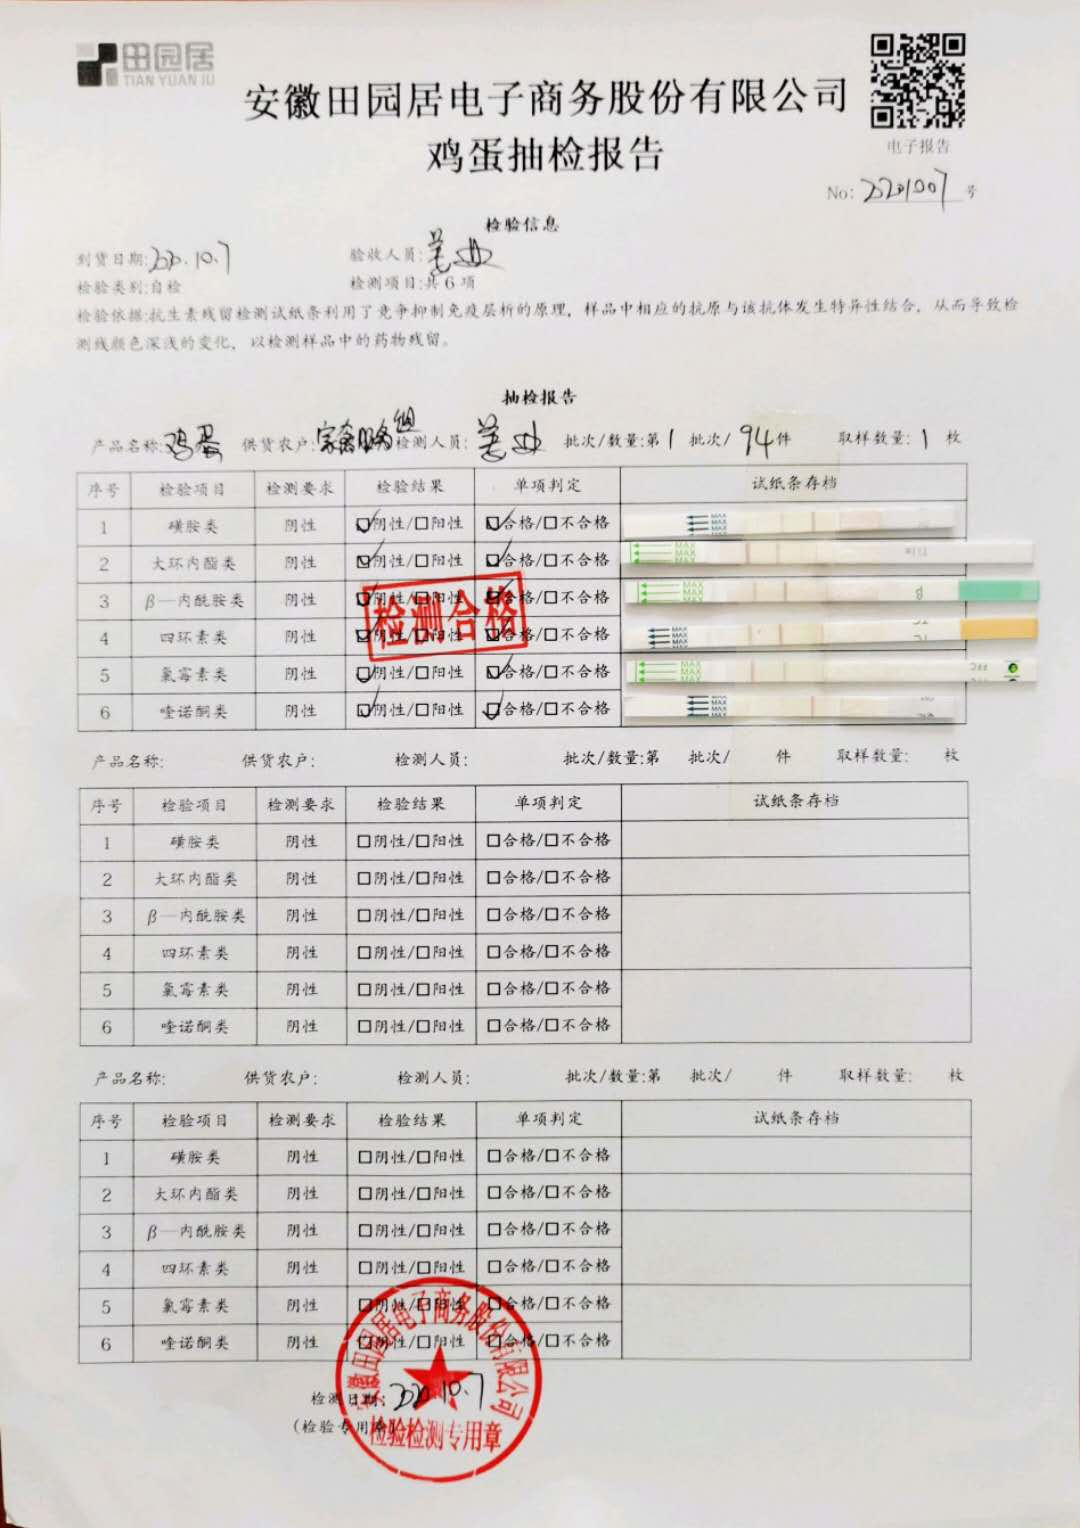 田园居
TIAN YUAN JU
安徽田园居电子商务股份有限公司
鸡蛋抽检报告
电子报告
No: 20201007 号
检验信息
到货日期: 2020.10.7 验收人员:
检验类别:自检 检测项目:共6项
检验依据:抗生素残留检测试纸条利用了竞争抑制免疫层析的原理，样品中相应的抗原与该抗体发生特异性结合，从而导致检
测线颜色深浅的变化，以检测样品中的药物残留。
抽检报告
产品名称:鸡蛋 供货农户: 检测人员: 批次/数量:第1 批次/ 94件 取样数量: 1 枚
序号 检验项目 检测要求 检验结果 单项判定 试纸条存档
1 磺胺类 阴性 ☑阴性/☐阳性 ☑合格/☐不合格 MAX MAX MAX MAX
2 大环内酯类 阴性 ☑阴性/☐阳性 ☑合格/☐不合格 MAX MAX MAX
3 β—内酰胺类 阴性 ☑阴性/☐阳性 ☑合格/☐不合格 MAX MAX MAX β
4 四环素类 阴性 ☑阴性/☐阳性 ☑合格/☐不合格 MAX MAX MAX TC
5 氯霉素类 阴性 ☑阴性/☐阳性 ☑合格/☐不合格 MAX MAX MAX
6 喹诺酮类 阴性 ☑阴性/☐阳性 ☑合格/☐不合格 MAX MAX MAX
检测合格
产品名称: 供货农户: 检测人员: 批次/数量:第 批次/ 件 取样数量: 枚
序号 检验项目 检测要求 检验结果 单项判定 试纸条存档
1 磺胺类 阴性 ☐阴性/☐阳性 ☐合格/☐不合格
2 大环内酯类 阴性 ☐阴性/☐阳性 ☐合格/☐不合格
3 β—内酰胺类 阴性 ☐阴性/☐阳性 ☐合格/☐不合格
4 四环素类 阴性 ☐阴性/☐阳性 ☐合格/☐不合格
5 氯霉素类 阴性 ☐阴性/☐阳性 ☐合格/☐不合格
6 喹诺酮类 阴性 ☐阴性/☐阳性 ☐合格/☐不合格
产品名称: 供货农户: 检测人员: 批次/数量:第 批次/ 件 取样数量: 枚
序号 检验项目 检测要求 检验结果 单项判定 试纸条存档
1 磺胺类 阴性 ☐阴性/☐阳性 ☐合格/☐不合格
2 大环内酯类 阴性 ☐阴性/☐阳性 ☐合格/☐不合格
3 β—内酰胺类 阴性 ☐阴性/☐阳性 ☐合格/☐不合格
4 四环素类 阴性 ☐阴性/☐阳性 ☐合格/☐不合格
5 氯霉素类 阴性 ☐阴性/☐阳性 ☐合格/☐不合格
6 喹诺酮类 阴性 ☐阴性/☐阳性 ☐合格/☐不合格
安徽田园居电子商务股份有限公司
检测日期: 2020.10.7
(检验专用章)
检验检测专用章